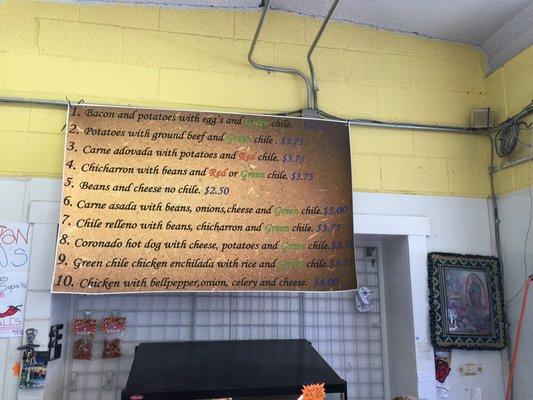 1. Bacon and potatoes with egg's and Green chile.
2. Potatoes with ground beef and Green chile . $3.75
3. Carne adovada with potatoes and Red chile. $3.75
4. Chicharron with beans and Red or Green chile. $3.75
5. Beans and cheese no chile. $2.50
6. Carne asada with beans, onions,cheese and Green chile.$5.00
7. Chile relleno with beans, chicharron and Green chile. $3.75
8. Coronado hot dog with cheese, potatoes and Green chile. $3.7
9. Green chile chicken enchilada with rice and Green chile.$3.7
10. Chicken with bellpepper,onion, celery and cheese. $4.00
TON
NS